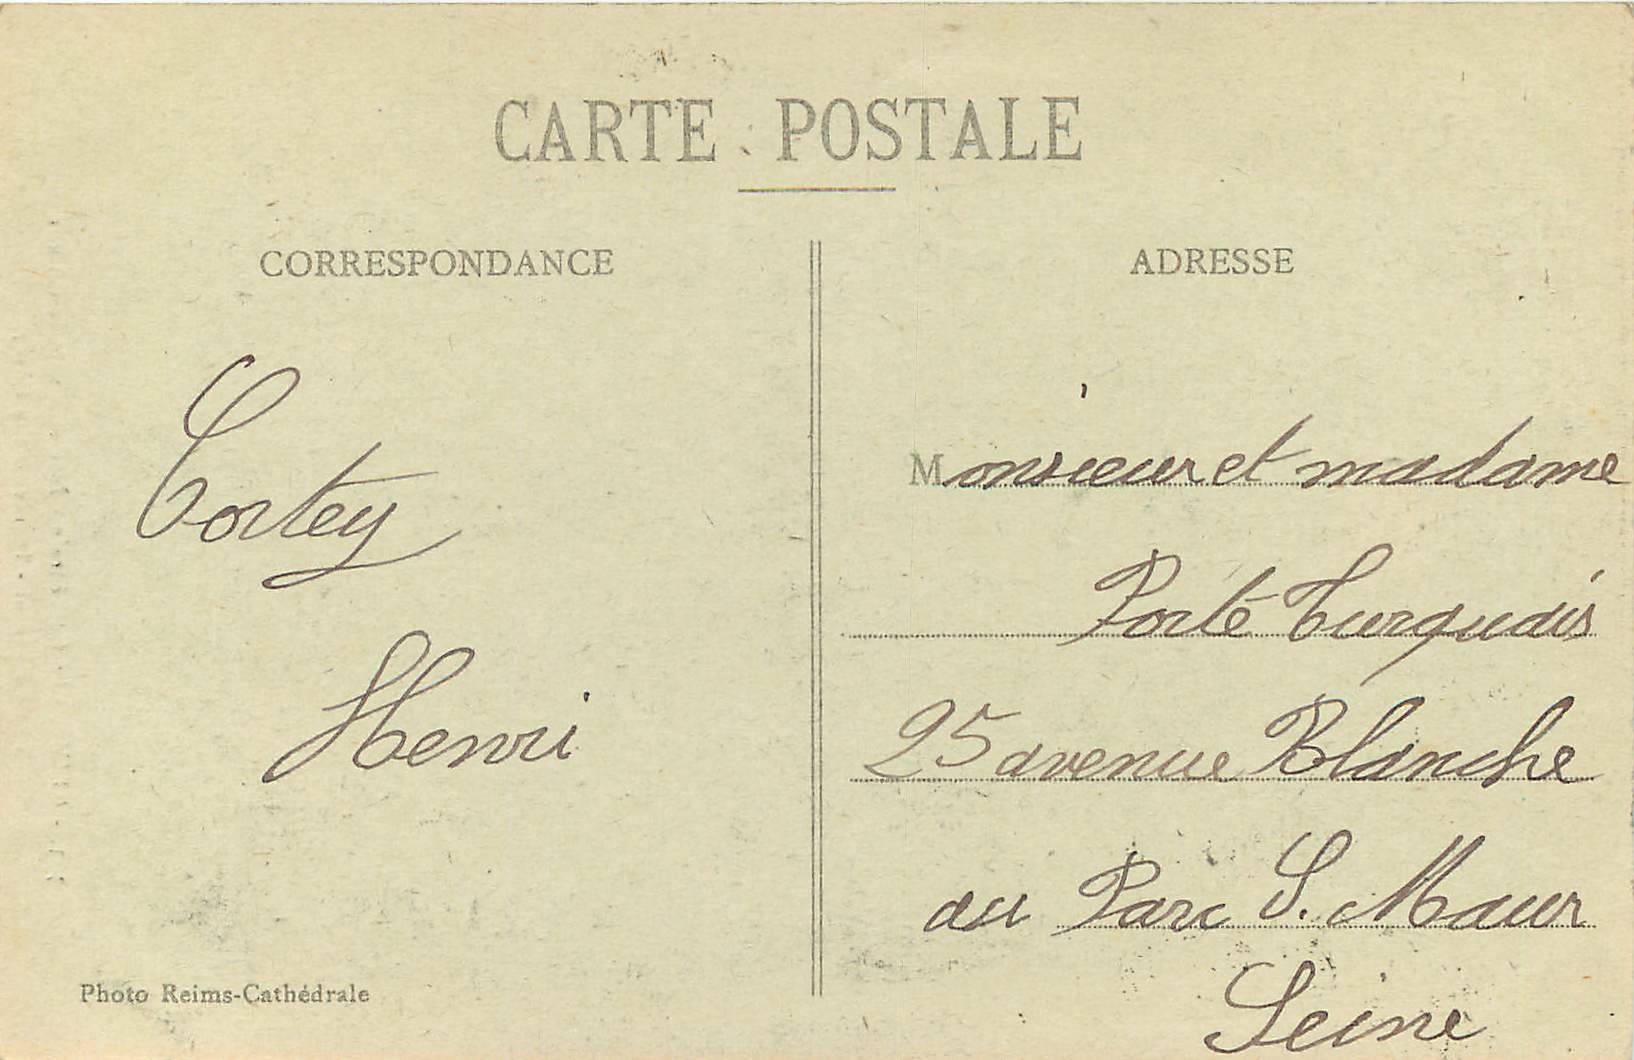 CARTE POSTALE
CORRESPONDANCE
ADRESSE
Tortey
Henri
Monsieur et madame
Porte Turquais
25 avenue Blanche
au Parc S. Maur
Seine
Photo Reims-Cathédrale